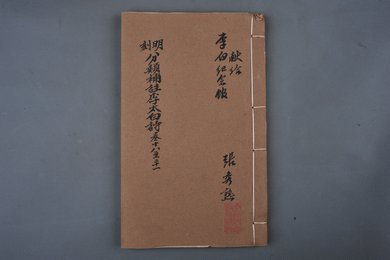 献给
李白纪念馆
張秀熟
明刻分類補註李太白詩卷十八至二一